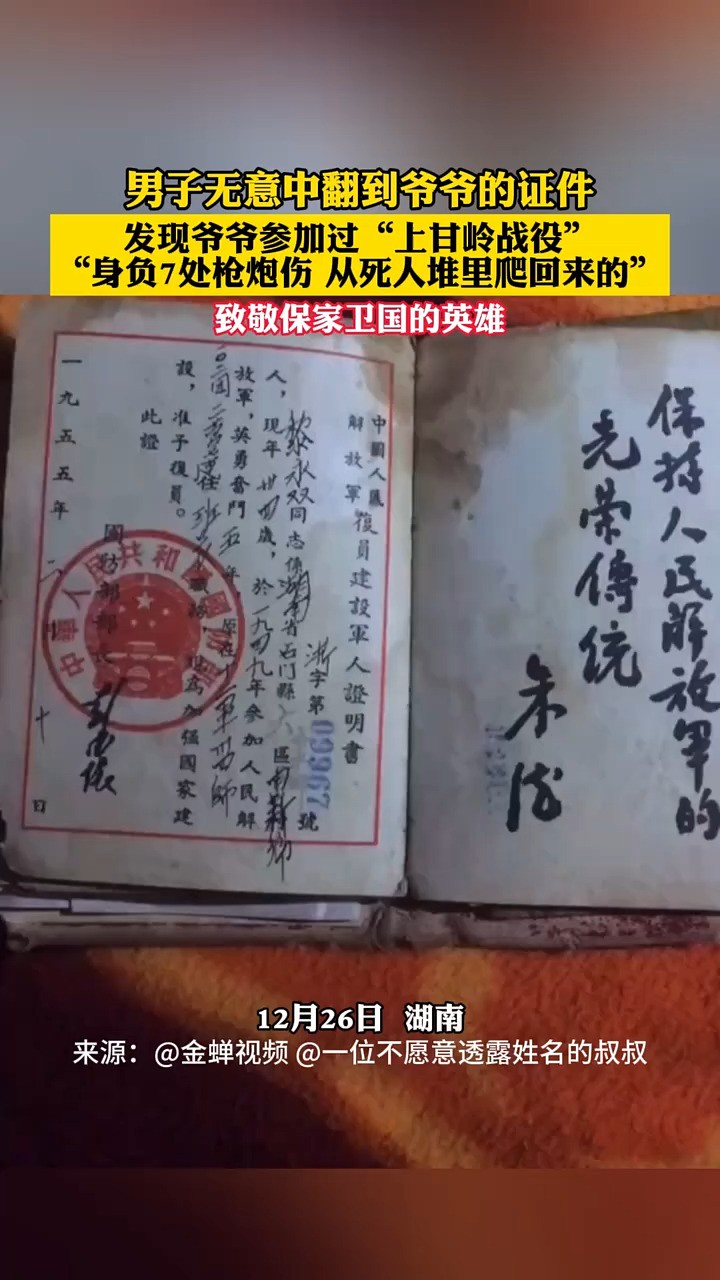 男子无意中翻到爷爷的证件
发现爷爷参加过“上甘岭战役”
“身负7处枪炮伤 从死人堆里爬回来的”
致敬保家卫国的英雄
中國人民
解放軍復員建設軍人證明書
浙字第09967號
黎永双同志係湖南省石门縣
區
人，現年廿四歲，於一九四九年參加人民解
放軍，英勇奮鬥五年，原在十二軍卅四師
班長職務，現為加強國家建
設，准予復員。
此證
國防部部長
彭德懷
一九五五年二月十日
中華人民共和國國防部
保持人民解放軍的
光荣傳统
朱德
12月26日 湖南
来源：@金蝉视频 @一位不愿意透露姓名的叔叔